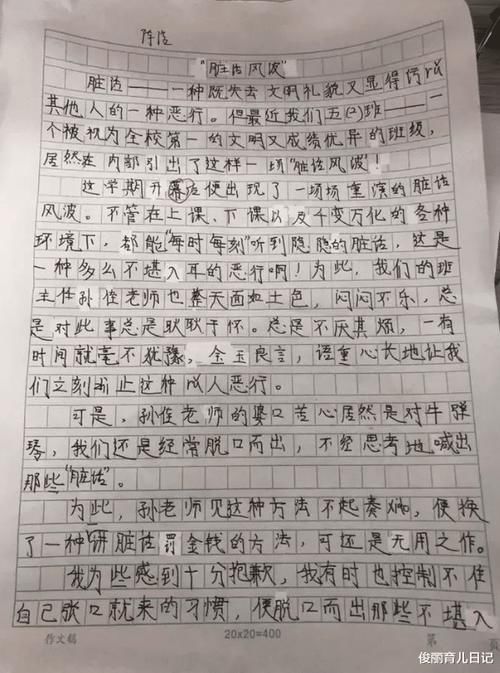 陈浩
"脏话风波"
脏话——一种既失去文明礼貌又显得
其他人的一种恶行。但最近我们五(2)班——一
个被视为全校第一的文明又成绩优异的班级,
居然在内部引出了这样一场"脏话风波"!
这学期开幕后便出现了一场场重演的脏话
风波。不管在上课、下课以及千变万化的各种
环境下,都能"每时每刻"听到隐隐的脏话,这是
一种多么不堪入耳的恶行啊!为此,我们的班
主任孙佳老师也整天面如土色,闷闷不乐,总
是对此事总是耿耿于怀。总是不厌其烦,一有
时间就毫不犹豫,金玉良言,语重心长地让我
们立刻制止这种以人恶行。
可是,孙佳老师的婆口苦心居然是对牛弹
琴,我们还是经常脱口而出,不经思考地喊出
那些"脏话"。
为此,孙老师见这种方法不起奏效,便换
了一种讲脏话罚金钱的方法,可还是无用之作。
我为些感到十分抱歉,我有时也控制不住
自己张口就来的习惯,便脱口而出那些不堪入
作文稿 20x20=400 第 页
俊丽育儿日记